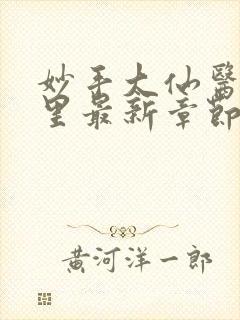 妙手大仙醫
里最新章節
黄河洋一郎